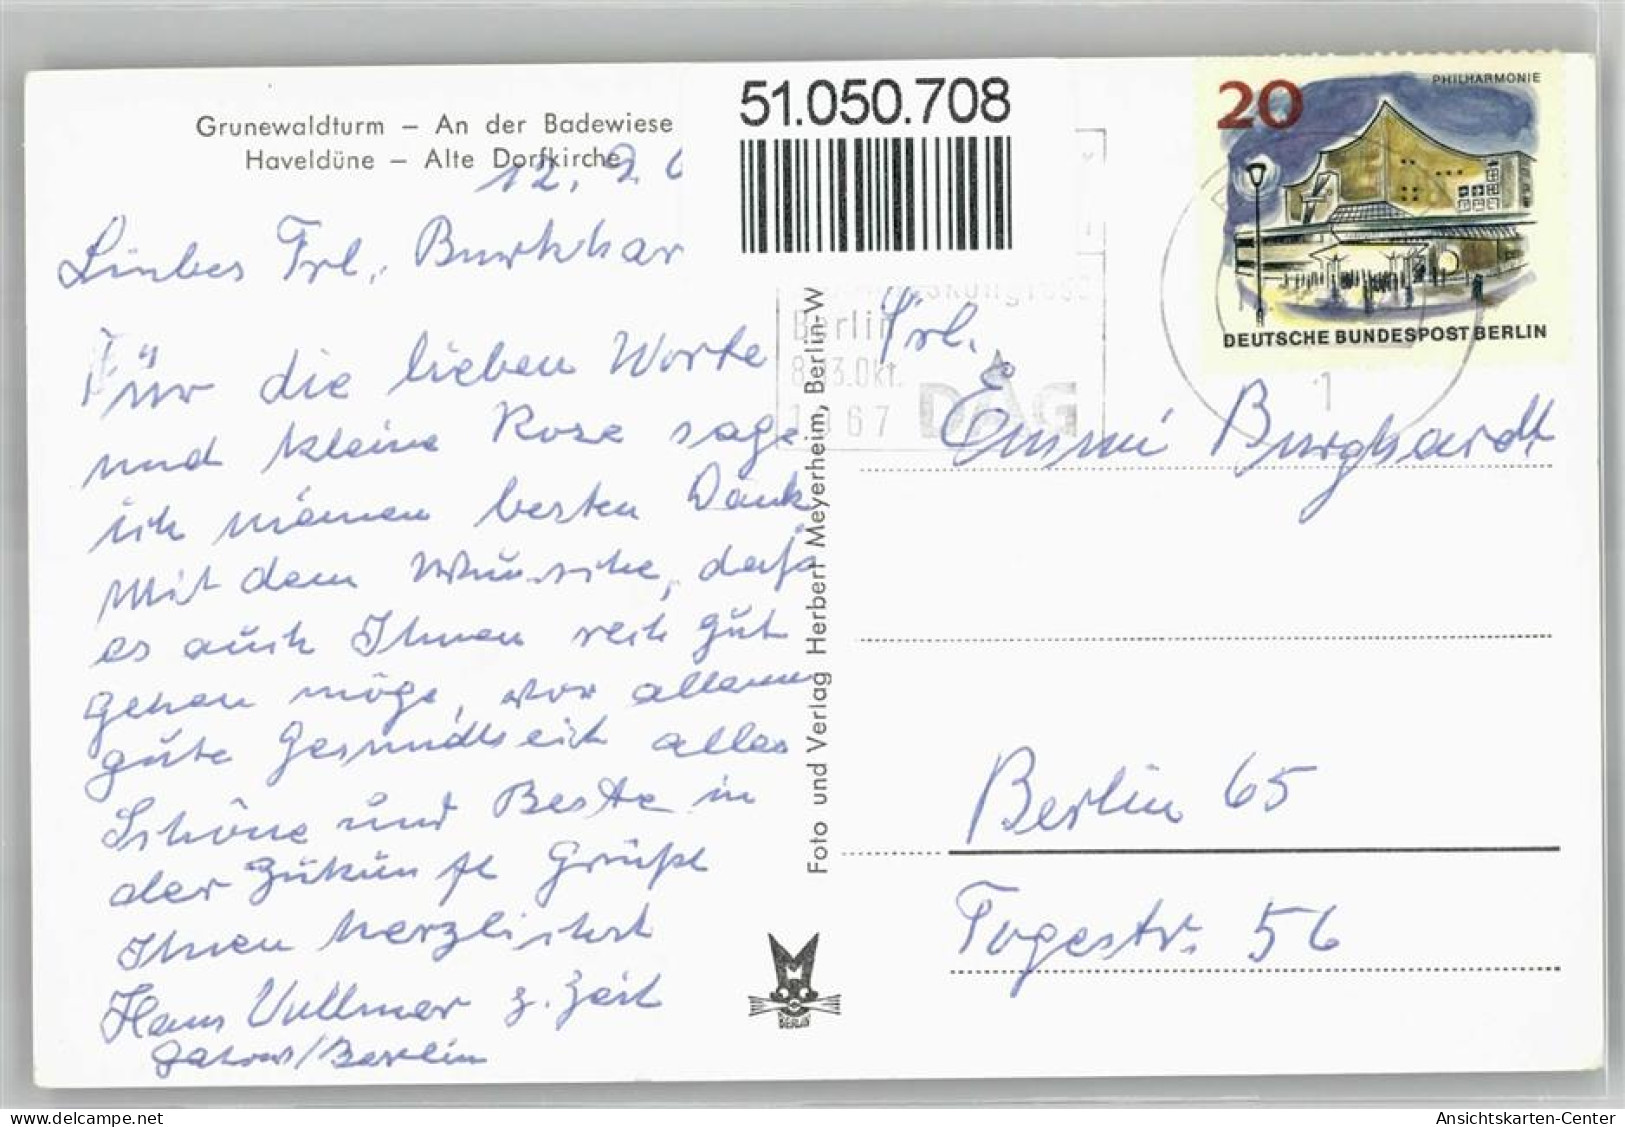 Grunewaldturm – An der Badewiese
Haveldüne – Alte Dorfkirche
12. 9. 6
Liebes Frl. Burkhar
Für die lieben Worte
und kleine Rose sage
ich meinen besten Dank
Mit dem Wunsche, daß
es auch Ihnen recht gut
gehen möge, vor allem
gute Gesundheit alles
Schöne und Beste in
der Zukunft Grüßt
Ihnen herzlichst
Hans Vollmer z. Zeit
Gatow/Berlin
51.050.708
Foto und Verlag Herbert Meyerheim, Berlin-W
BERLIN
Berlin
8.-13.Okt.
1967 DAG
1
20
PHILHARMONIE
DEUTSCHE BUNDESPOST BERLIN
Frl.
Emmi Burghardt
Berlin 65
Togostr. 56
Ansichtskarten-Center